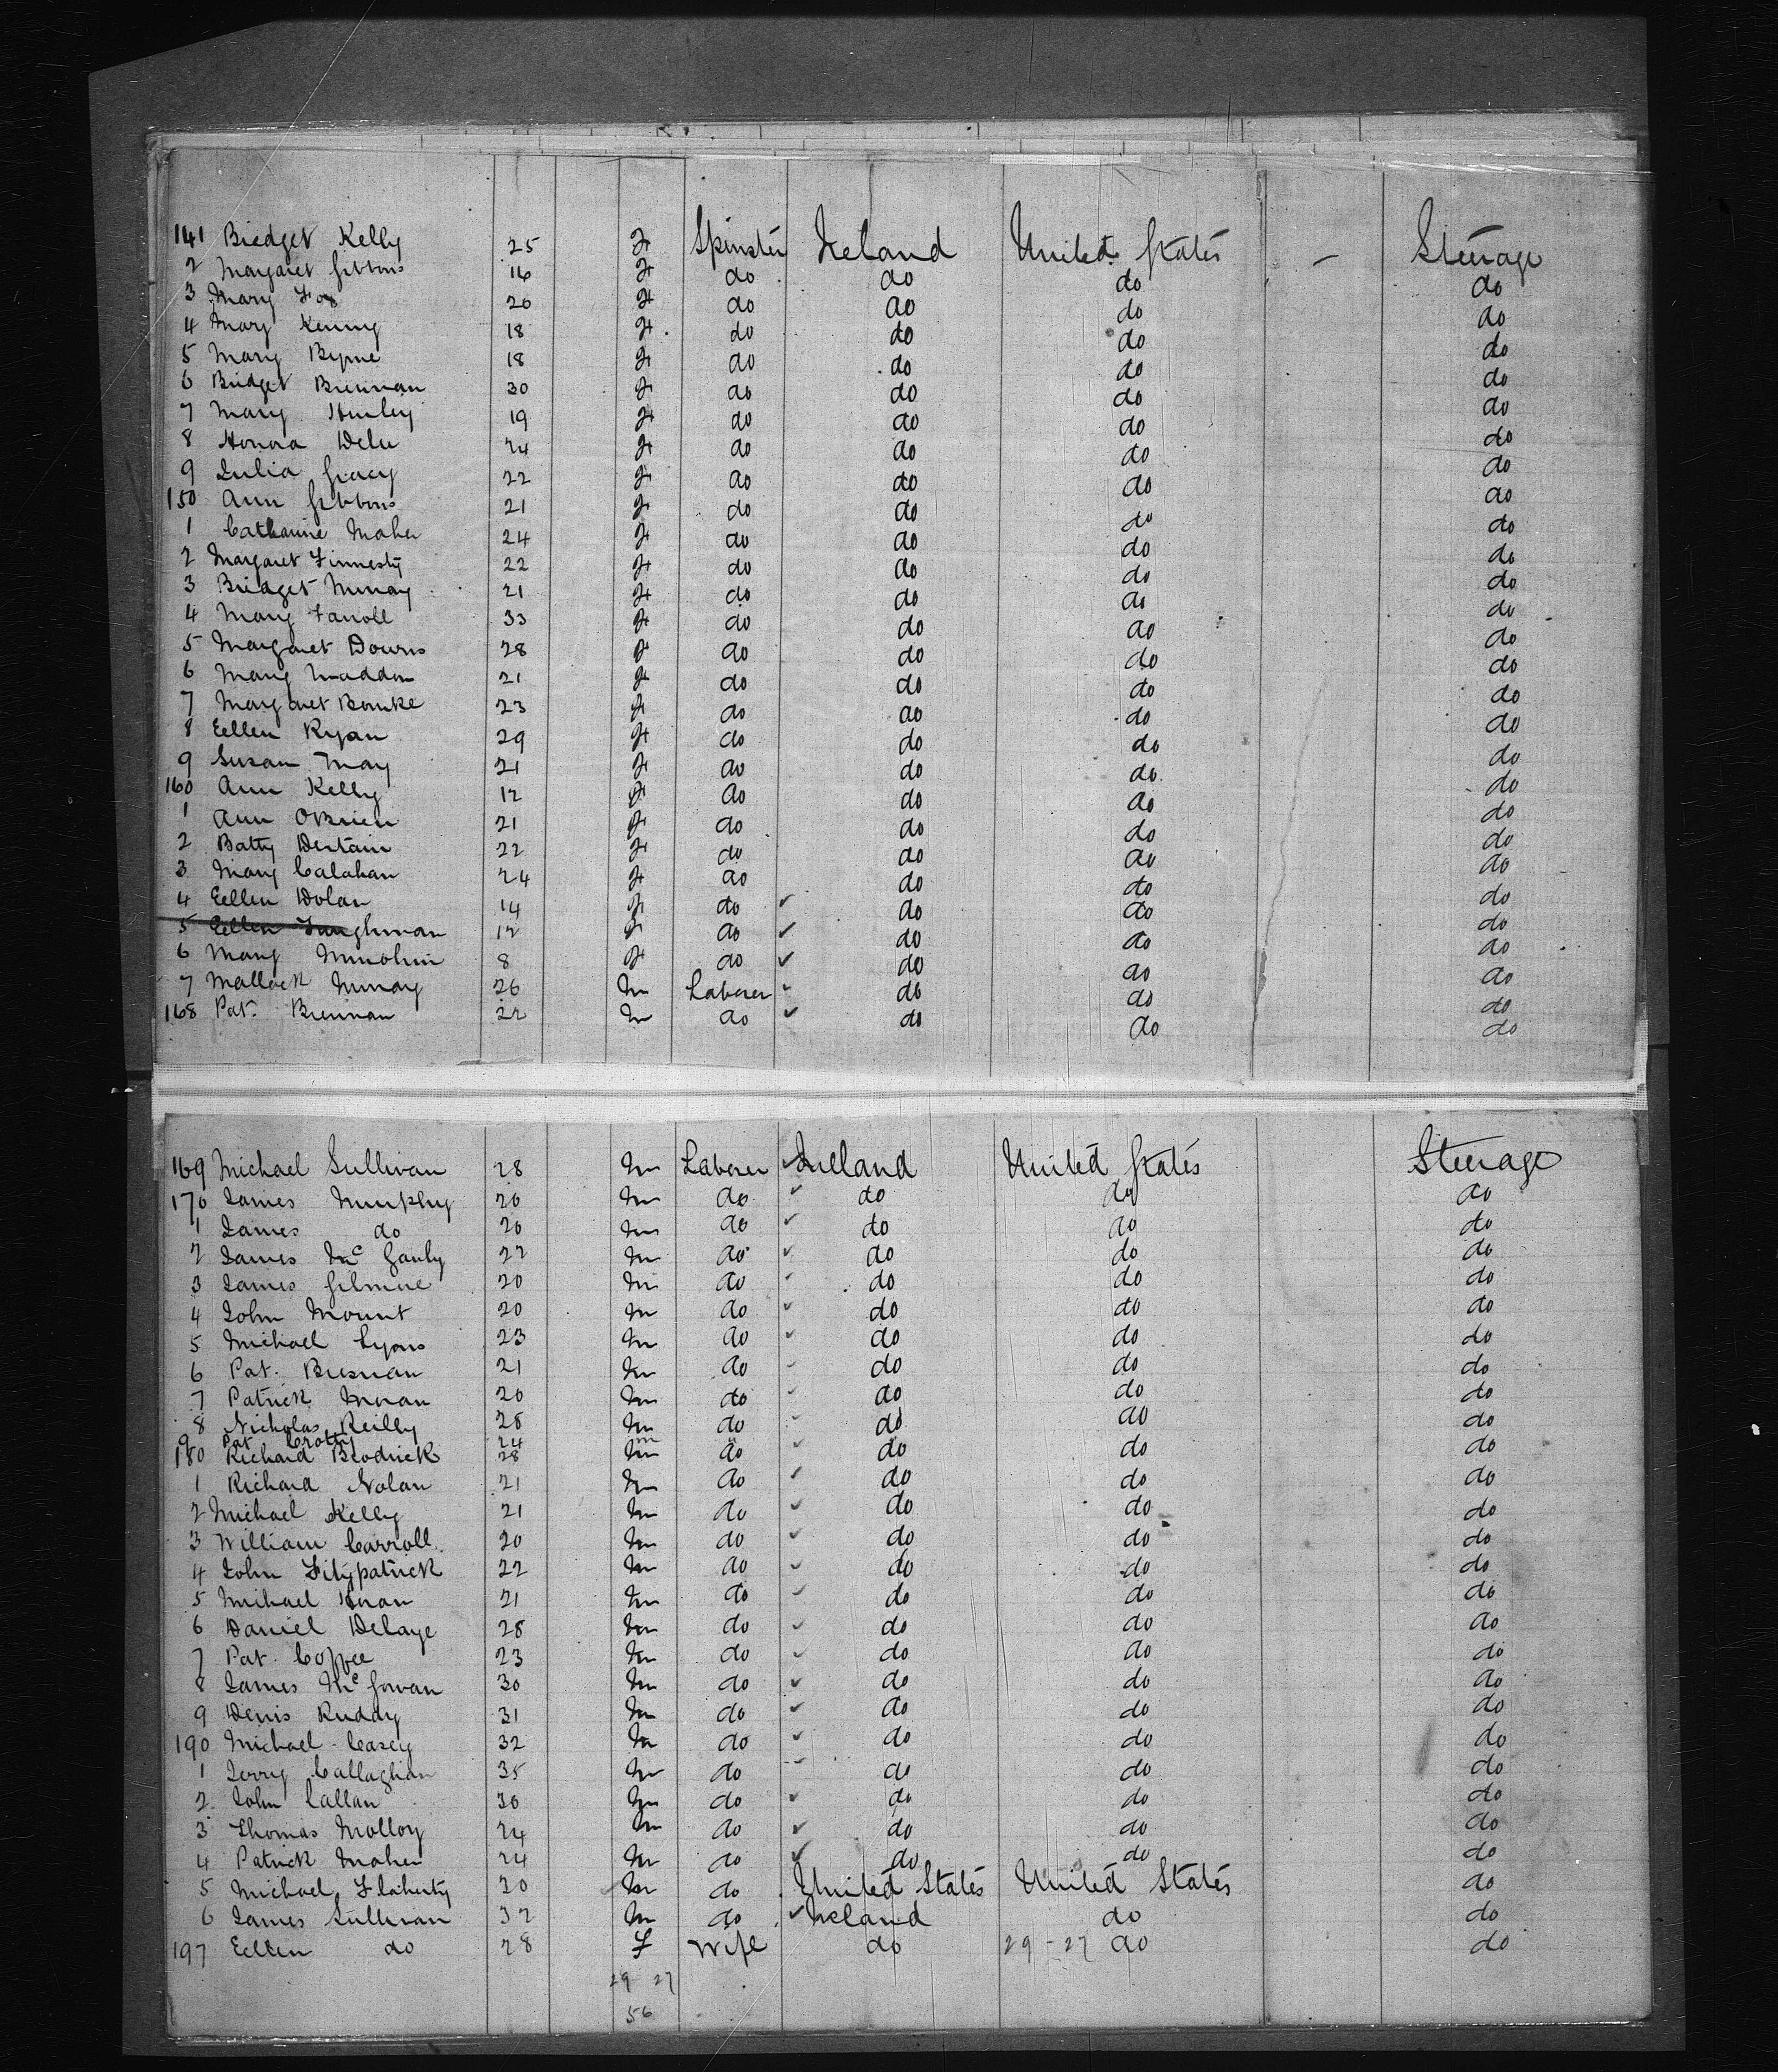 141 Bridget Kelly 25 F Spinster Ireland United States – Steerage
2 Margaret Gibbons 16 F do do do do
3 Mary Fox 20 F do do do do
4 Mary Kenny 18 F do do do do
5 Mary Byrne 18 F do do do do
6 Bridget Brennan 30 F do do do do
7 Mary Hurley 19 F do do do do
8 Honora 24 F do do do do
9 Julia Gracy 22 F do do do do
150 Ann Gibbons 21 F do do do do
1 Catharine Maher 24 F do do do do
2 Margaret Finnesty 22 F do do do do
3 Bridget Murray 21 F do do do do
4 Mary Farroll 33 F do do do do
5 Margaret Downs 28 F do do do do
6 Mary Madden 21 F do do do do
7 Margaret Bourke 23 F do do do do
8 Eellen Ryan 29 F do do do do
9 Susan May 21 F do do do do
160 Ann Kelly 12 F do do do do
1 Ann OBrien 21 F do do do do
2 Batty 22 F do do do do
3 Mary Calahan 24 F do do do do
4 Eellen Dolan 14 F do ✓ do do do
5 Eellen 12 F do ✓ do do do
6 Mary 8 F do ✓ do do do
7 Mallack Murray 26 M Laborer ✓ do do do
168 Pat. Brennan 22 M do ✓ do do do
169 Michael Sullivan 28 M Laborer ✓ Ireland United States Steerage
170 James Murphy 20 M do ✓ do do do
1 James do 20 M do ✓ do do do
2 James Mc 22 M do ✓ do do do
3 James Gilmore 20 M do ✓ do do do
4 John Mount 20 M do ✓ do do do
5 Michael Lyons 23 M do ✓ do do do
6 Pat. Bresnan 21 M do ✓ do do do
7 Patrick Moran 20 M do ✓ do do do
8 Nicholas Reilly 28 M do ✓ do do do
9 Pat Crotty 24 m "
180 Richard Brodrick 28 M do ✓ do do do
1 Richard Nolan 21 M do ✓ do do do
2 Michael Kelly 21 M do ✓ do do do
3 William Carroll 20 M do ✓ do do do
4 John Fitzpatrick 22 M do ✓ do do do
5 Michael Horan 21 M do ✓ do do do
6 Daniel Delaye 28 M do ✓ do do do
7 Pat. Coffee 23 M do ✓ do do do
8 James Mc Gowan 30 M do ✓ do do do
9 Denis Ruddy 31 M do ✓ do do do
190 Michael Casey 32 M do ✓ do do do
1 Jerry Callaghan 35 M do ✓ do do do
2 John Callan 30 M do ✓ do do do
3 Thomas Molloy 24 M do ✓ do do do
4 Patrick Maher 24 M do ✓ do do do
5 Michael Flaherty 20 M do United States United States do
6 James Sullivan 32 M do ✓ Ireland do do
197 Eellen do 28 F Wife do 29 - 27 do do
29 27
56